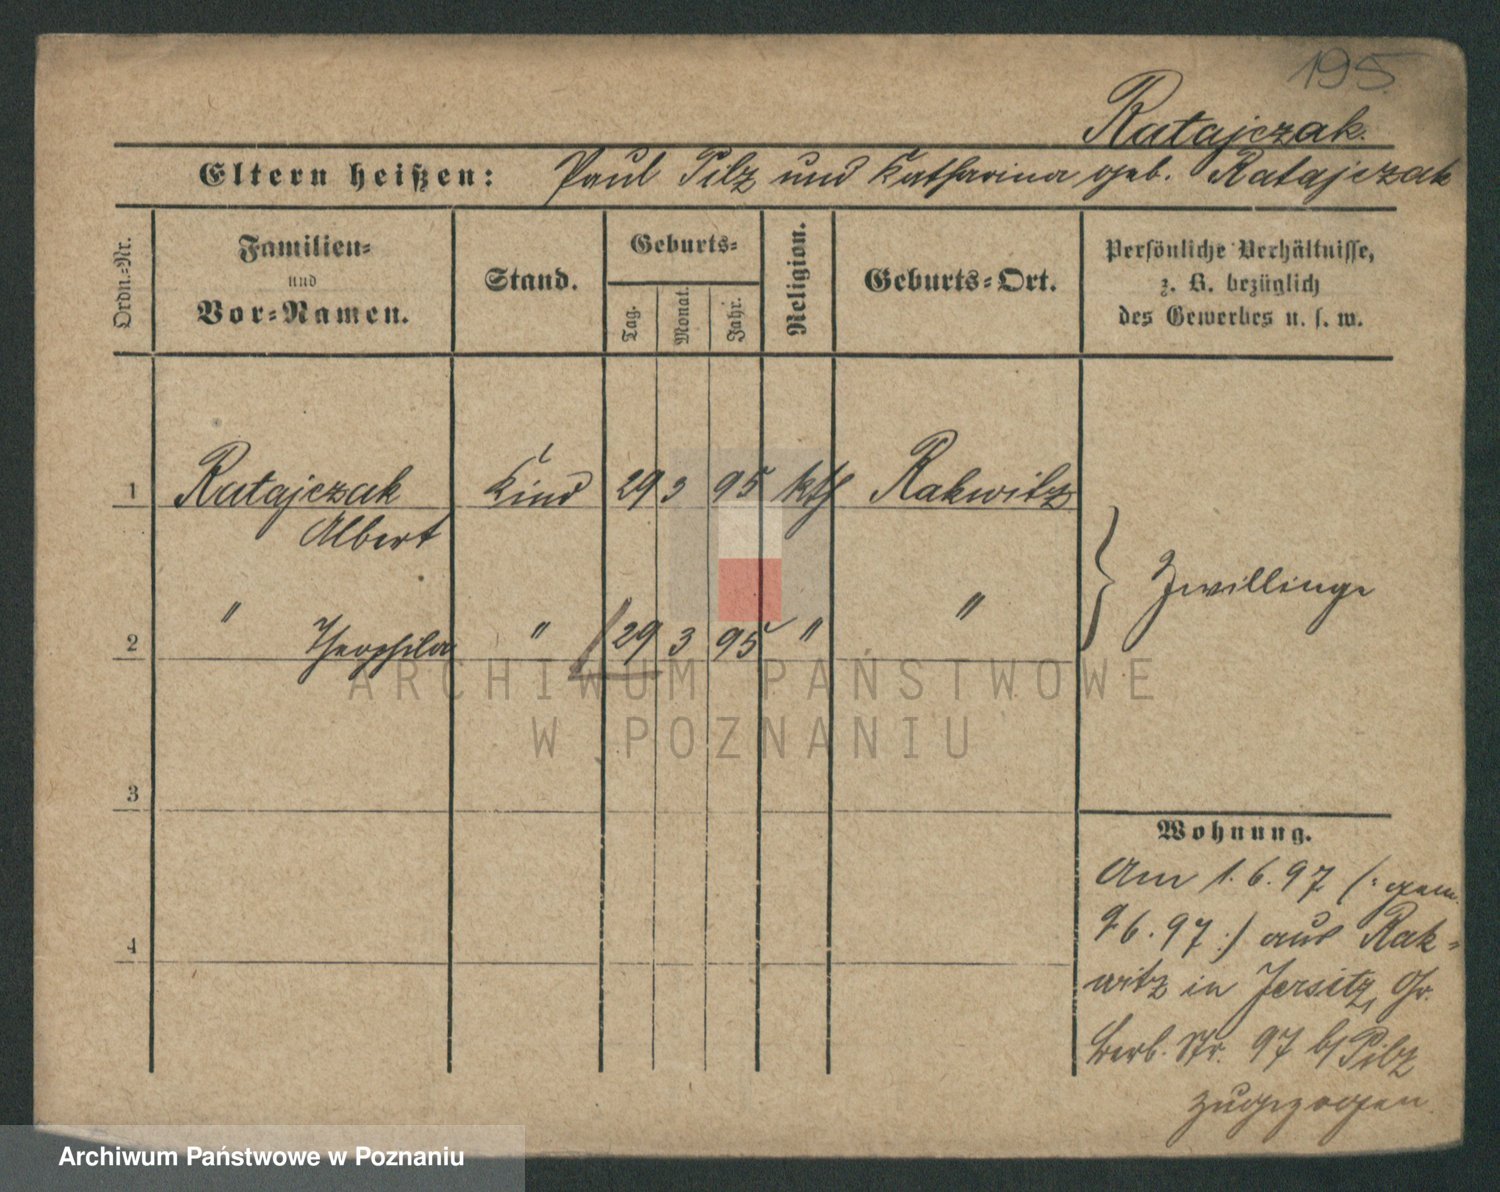 195
Ratajczak.
Eltern heißen: Paul Pilz und Katharina geb. Ratajczak
Ordn.-Nr.
Familien-
und
Vor-Namen.
Stand.
Geburts-
Tag.
Monat.
Jahr.
Religion.
Geburts-Ort.
Persönliche Verhältnisse,
z. B. bezüglich
des Gewerbes u. s. w.
1 Ratajczak Kind 29 3 95 kth Rakwitz
Albert
} Zwillinge
2 " Theophila " 29 3 95 " "
3
4
Wohnung.
Am 1.6.97 (: gem.
9.6.97 :) aus Rak-
witz in Jersitz, Gr.
Berl. Str. 97 b/ Pilz
zugezogen
ARCHIWUM PAŃSTWOWE
W POZNANIU
Archiwum Państwowe w Poznaniu